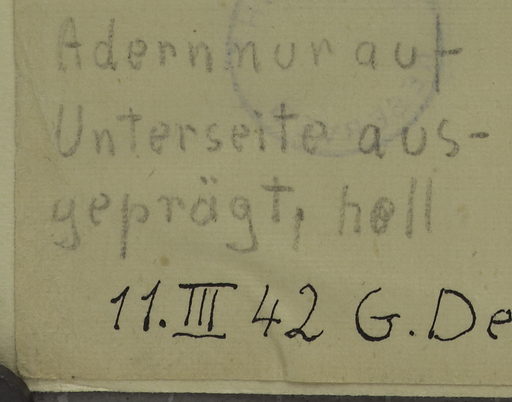 Adern nur auf
Unterseite aus-
geprägt, hell
11. III 42 G. De